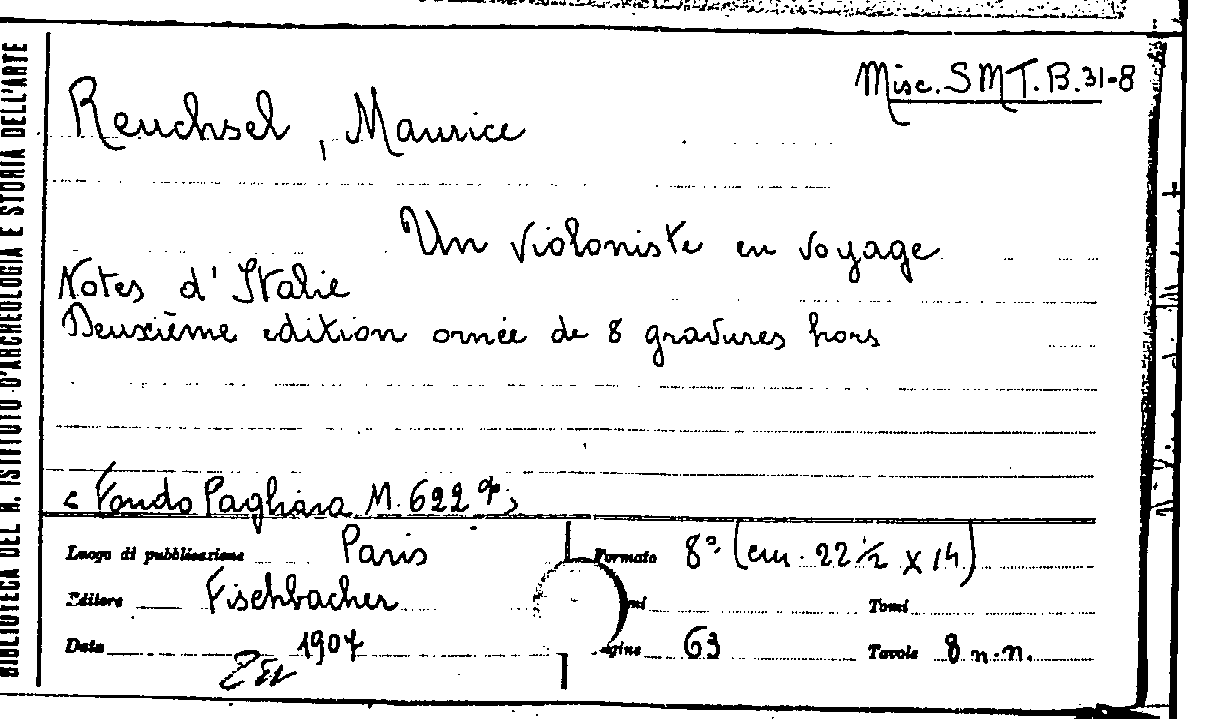 BIBLIOTECA DEL R. ISTITUTO D'ARCHEOLOGIA E STORIA DELL'ARTE
Misc. SMT.B.31-8
Reuchsel, Maurice
Un violoniste en voyage
Notes d'Italie
Deuxième edition ornée de 8 gravures hors
< Fondo Pagliara M. 622 >
Luogo di pubblicazione Paris
Formato 8° (cm. 22 1/2 x 14)
Editore Fischbacher
Tomi
Data 1907
63
Tavole 8 n.n.